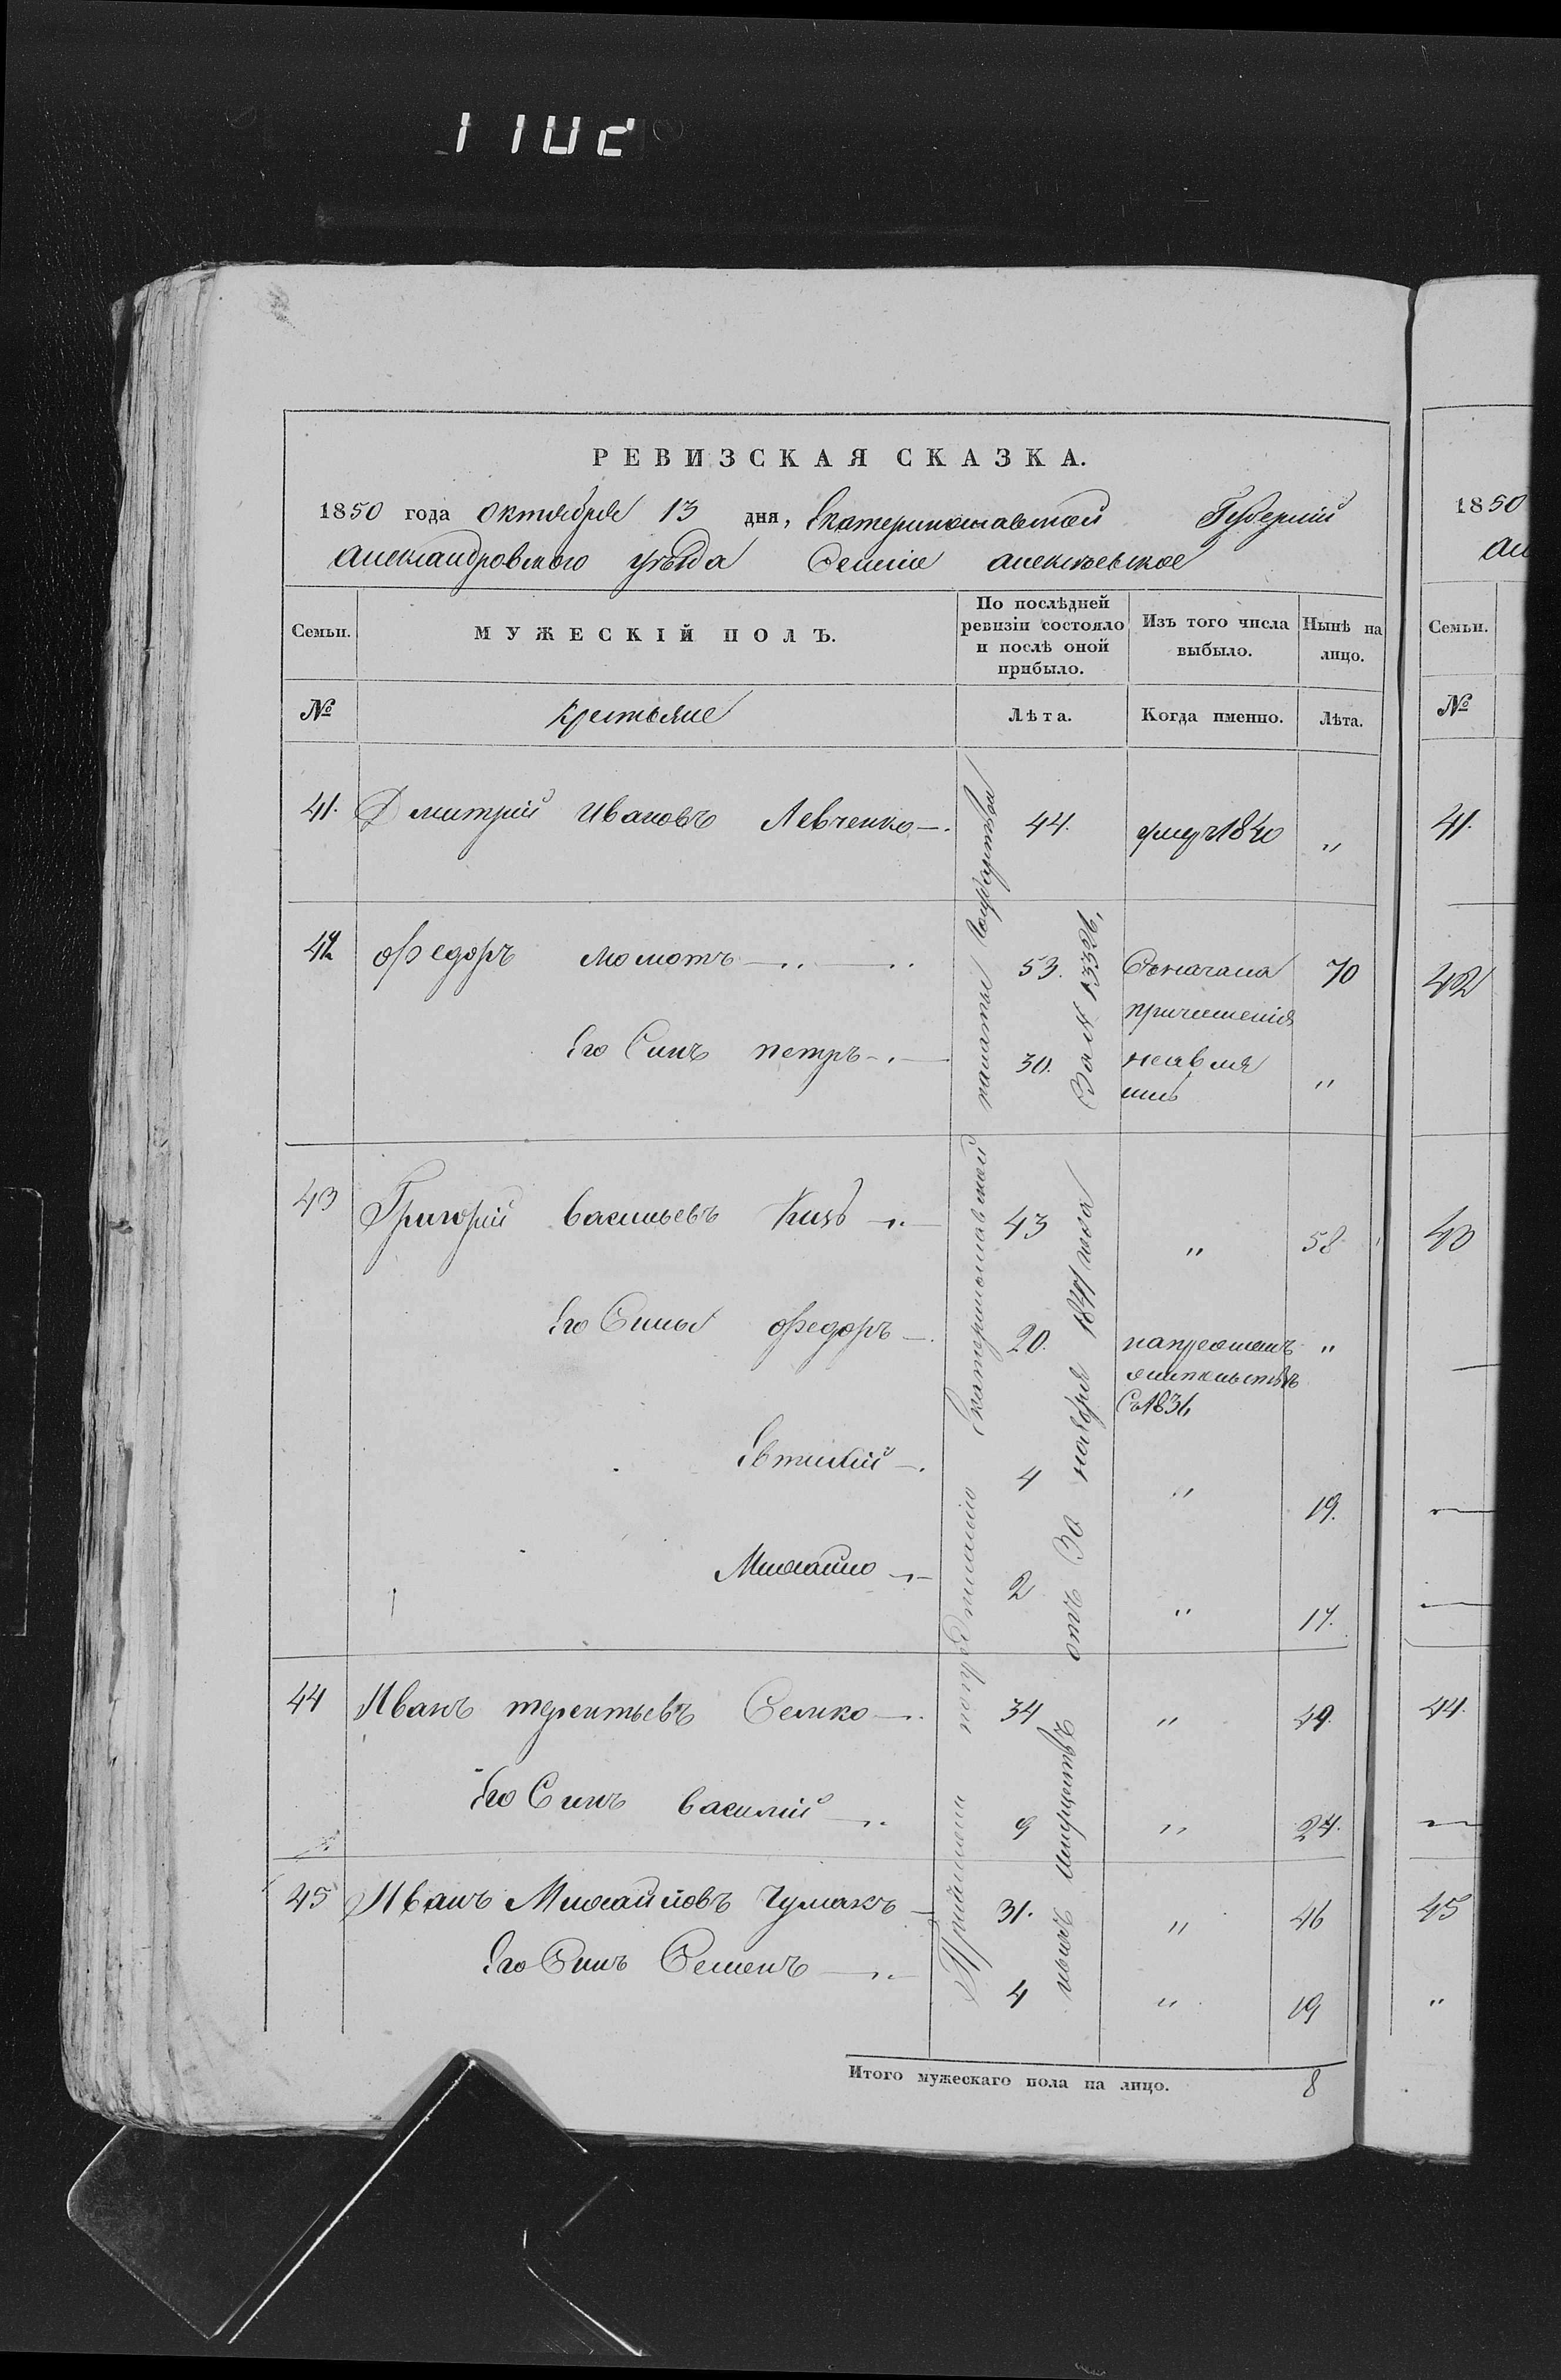 1102
РЕВИЗСКАЯ СКАЗКА.
1850 года Октября 13 дня, Екатеринославской Губернiи
Александровского уѣзда Селенiе алексѣевское
Семьи. МУЖЕСКIЙ ПОЛЪ. По послѣдней ревизiи состояло и послѣ оной прибыло. Изъ того числа выбыло. Нынѣ на лицо.
№ крестьяне Лѣта. Когда именно. Лѣта.
41. Дмитрiй Ивановъ Левченко 44. умер 1840 "
42 Федоръ Момотъ 53. Сначала причисленiя 70
Его Синъ петръ 30. неявля "
43 Григорiй васильевъ Кизь 43 " 58
Его Сины Федоръ 20. "
Съ 1836
Евтихiй 4 " 19.
Михайло 2 " 17.
44 Иванъ терентьевъ Семко 34 " 49.
Его Синъ василiй 9 " 24.
45 Иванъ Михайловъ Чумакъ 31. " 46
Его Синъ Семенъ 4 " 19
Екатеринославской палаты Государствен
ныхъ имуществъ отъ 30 ноября 1841 года За № 13326,
Итого мужескаго пола на лицо. 8
1850
Ал
Семьи.
№
41.
42
43
44.
45
"